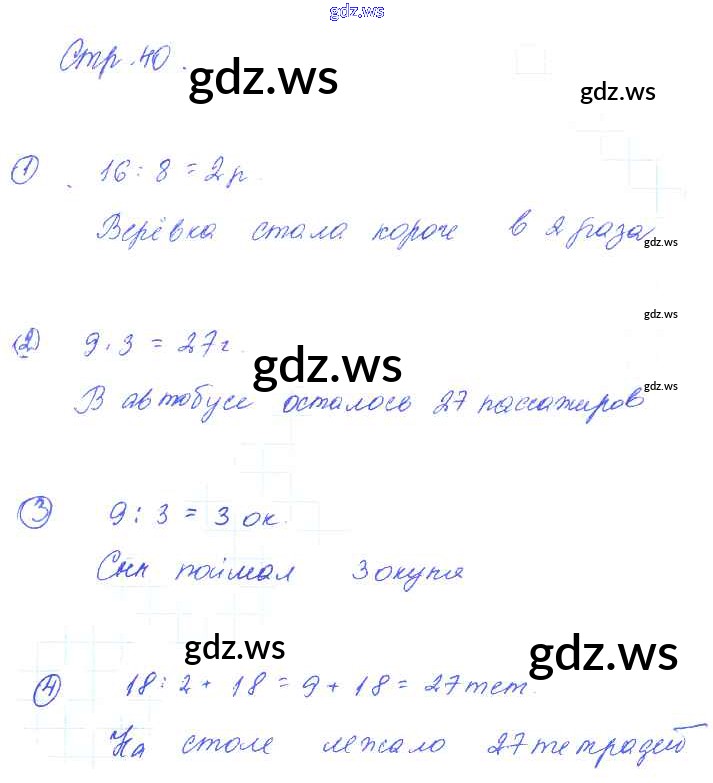 gdz.ws
Стр. 40.
gdz.ws
gdz.ws
① 16 : 8 = 2 р.
Верёвка стала короче в 2 раза
gdz.ws
gdz.ws
② 9 . 3 = 27 г.
gdz.ws
gdz.ws
В автобусе осталось 27 пассажиров
③ 9 : 3 = 3 ок.
Сын поймал 3 окуня
gdz.ws
gdz.ws
④ 18 : 2 + 18 = 9 + 18 = 27 тет.
На столе лежало 27 тетрадей